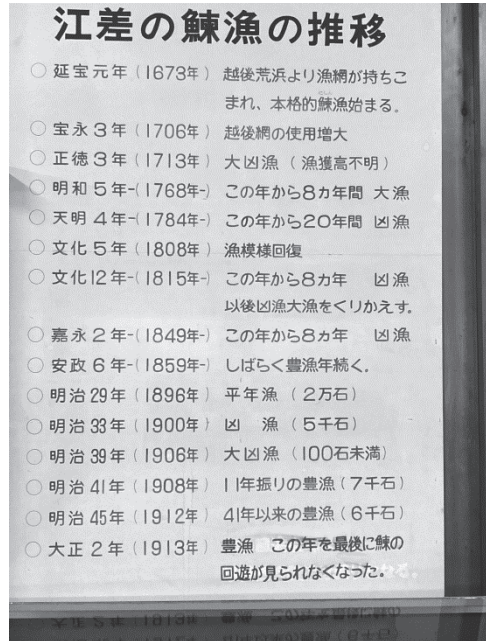 江差の鰊漁の推移
○ 延宝元年(1673年) 越後荒浜より漁網が持ちこ
まれ、本格的鰊漁始まる。
○ 宝永3年(1706年) 越後網の使用増大
○ 正徳3年(1713年) 大凶漁(漁獲高不明)
○ 明和5年-(1768年-) この年から8ヵ年間 大漁
○ 天明4年-(1784年-) この年から20年間 凶漁
○ 文化5年(1808年) 漁模様回復
○ 文化12年-(1815年-) この年から8ヵ年 凶漁
以後凶漁大漁をくりかえす。
○ 嘉永2年-(1849年-) この年から8ヵ年 凶漁
○ 安政6年-(1859年-) しばらく豊漁年続く.
○ 明治29年(1896年) 平年漁(2万石)
○ 明治33年(1900年) 凶 漁(5千石)
○ 明治39年(1906年) 大凶漁(100石未満)
○ 明治41年(1908年) 11年振りの豊漁(7千石)
○ 明治45年(1912年) 41年以来の豊漁(6千石)
○ 大正2年(1913年) 豊漁 この年を最後に鰊の
回遊が見られなくなった.